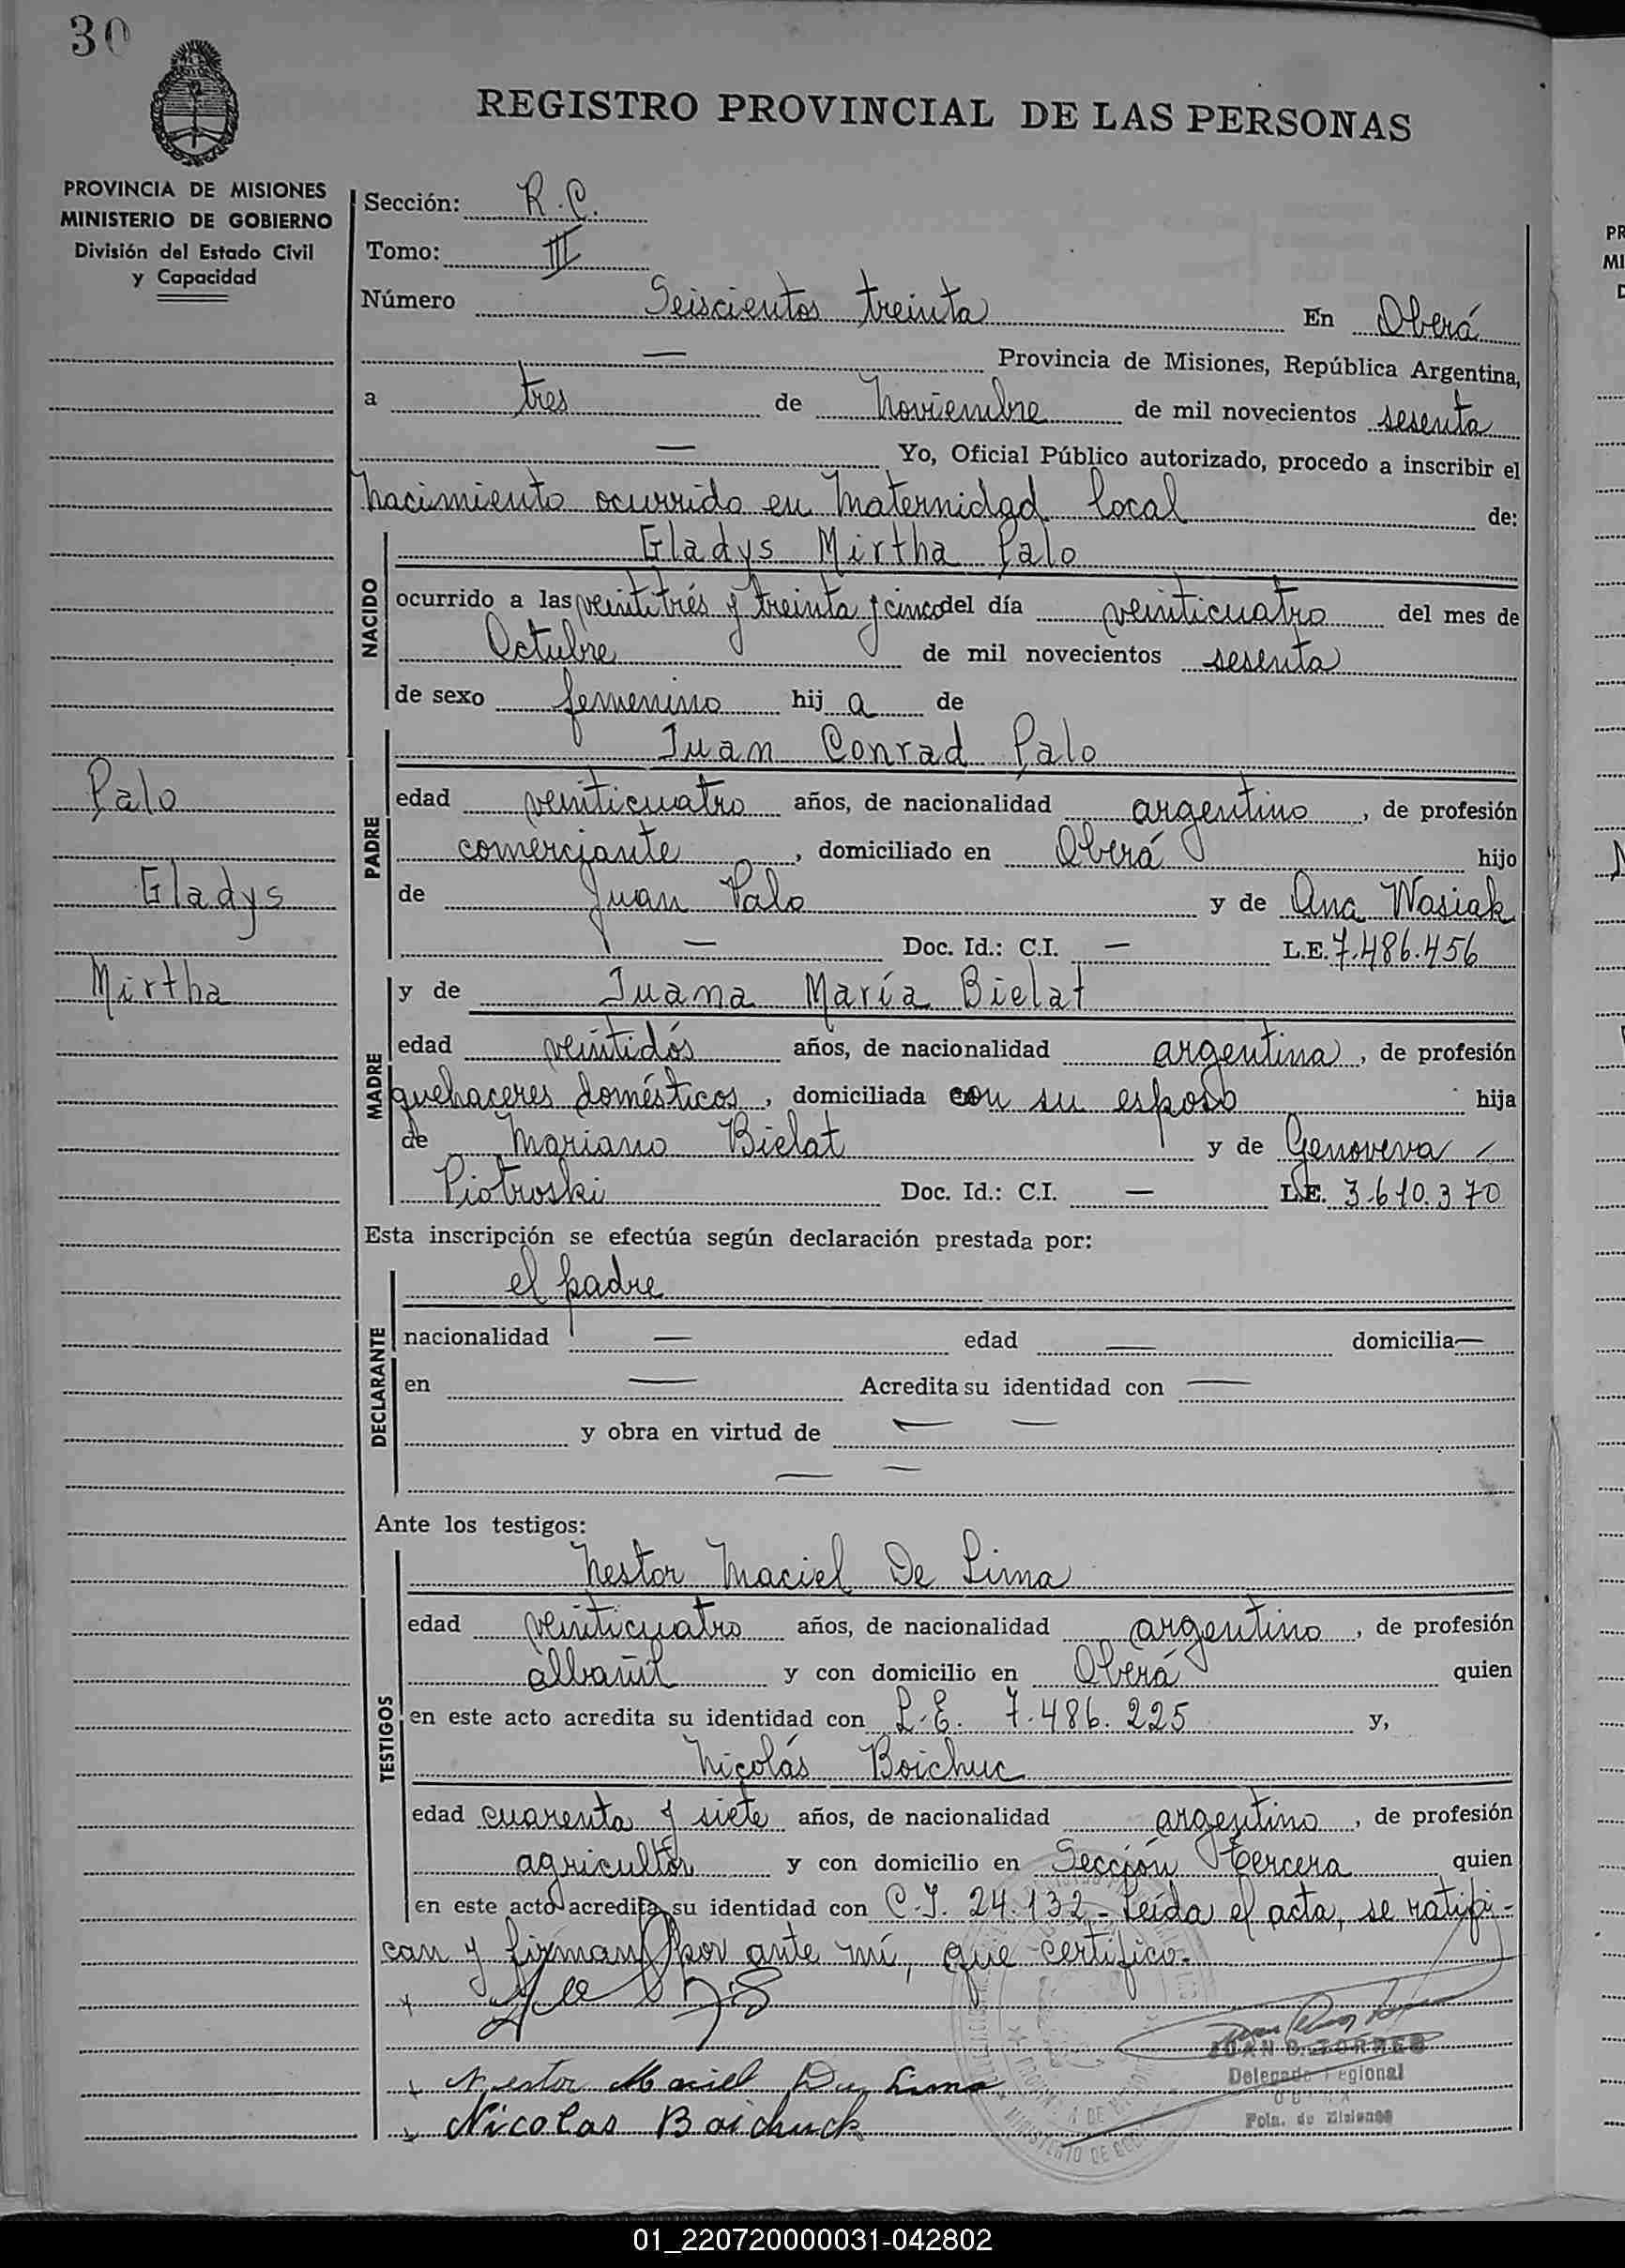 30
REGISTRO PROVINCIAL DE LAS PERSONAS
PROVINCIA DE MISIONES
MINISTERIO DE GOBIERNO
División del Estado Civil
y Capacidad
Palo
Gladys
Mirtha
Sección: R.C.
Tomo: III
Número Seiscientos treinta En Oberá
— Provincia de Misiones, República Argentina,
a tres de Noviembre de mil novecientos sesenta
— Yo, Oficial Público autorizado, procedo a inscribir el
Nacimiento ocurrido en Maternidad local de:
NACIDO
Gladys Mirtha Palo
ocurrido a las veintitrés y treinta y cinco del día veinticuatro del mes de
Octubre de mil novecientos sesenta
de sexo femenino hij a de
PADRE
Juan Conrad Palo
edad veinticuatro años, de nacionalidad argentino, de profesión
comerciante, domiciliado en Oberá hijo
de Juan Palo y de Ana Wasiak
— Doc. Id.: C.I. — L.E. 7.486.456
MADRE
y de Juana María Bielat
edad veintidós años, de nacionalidad argentina, de profesión
quehaceres domésticos, domiciliada con su esposo hija
de Mariano Bielat y de Genoveva
Piotroski Doc. Id.: C.I. — L.E. 3.610.370
Esta inscripción se efectúa según declaración prestada por:
DECLARANTE
el padre
nacionalidad — edad — domicilia—
en — Acredita su identidad con —
y obra en virtud de — —
— —
Ante los testigos:
TESTIGOS
Nestor Maciel De Lima
edad veinticuatro años, de nacionalidad argentino, de profesión
albañil y con domicilio en Oberá quien
en este acto acredita su identidad con L.E. 7.486.225 y,
Nicolás Boichuc
edad cuarenta y siete años, de nacionalidad argentino, de profesión
agricultor y con domicilio en Sección Tercera quien
en este acto acredita su identidad con C.I. 24.132- Leída el acta, se ratifi-
can y firman por ante mí, que certifico.-
JUAN B. TORRES
Delegado Regional
OBERA
Pcia. de Misiones
Nestor Maciel De Lima
Nicolas Boichuck
MINISTERIO DE
PR
MI
01_220720000031-042802